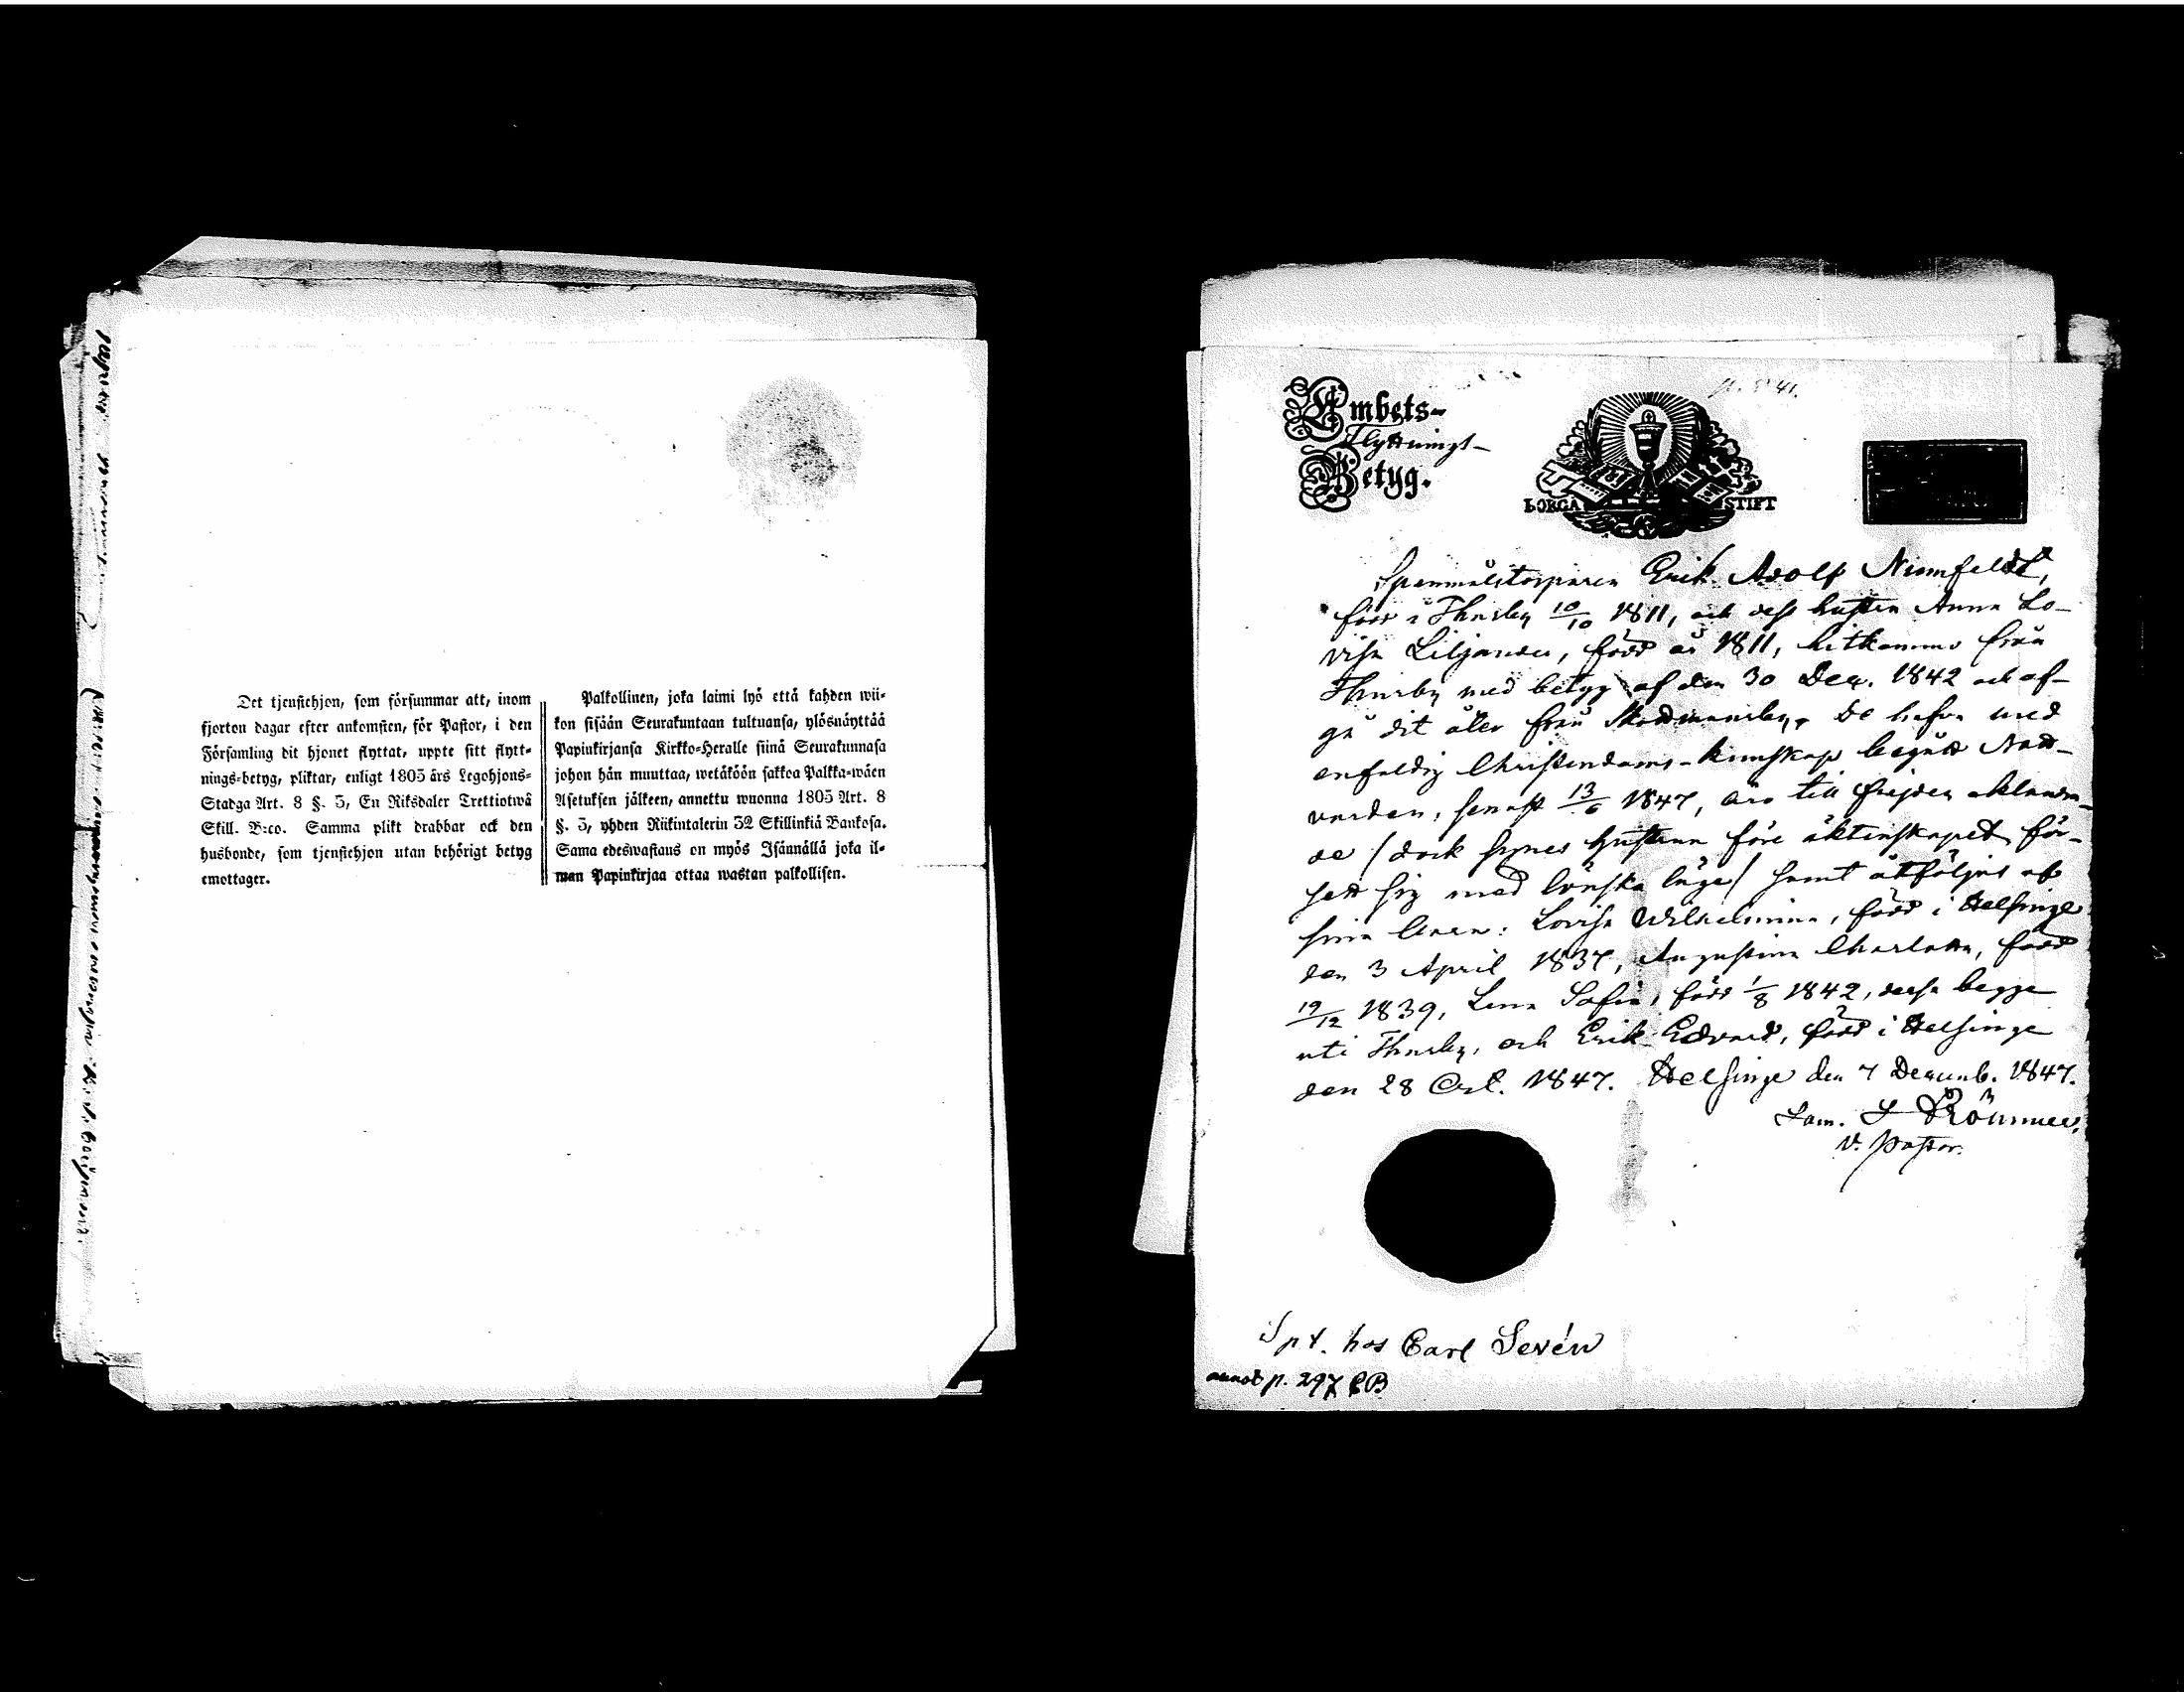 Det tjenstehjon, som försummar att, inom
fjorton dagar efter ankomsten, för Pastor, i den
Församling dit hjonet flyttat, uppte sitt flytt-
nings-betyg, pliktar, enligt 1805 års Legohjons-
Stadga Art. 8 §. 5, En Riksdaler Trettiotwå
Skill. B:co. Samma plikt drabbar ock den
husbonde, som tjenstehjon utan behörigt betyg
emottager.
Palkollinen, joka laimi lyö että kahden wii-
kon sisään Seurakuntaan tultuansa, ylösnäyttää
Papinkirjansa Kirkko-Heralle siinä Seurakunnasa
johon hän muuttaa, wetäköön sakkoa Palkka-wäen
Asetuksen jälkeen, annettu wuonna 1805 Art. 8
§. 5, yhden Riikintalerin 32 Skillinkiä Bankosa.
Sama edeswastaus on myös Isännällä joka il-
man Papinkirjaa ottaa wastan palkollisen.
Embets-
Flyttnings-
Betyg.
BORGÅ STIFT
Spanmålstorparen Erik Adolf Niomfeldt,
född i Thusby 10/10 1811, och dess hustru Anna Lo-
visa Liljander, född år 1811, hitkommo från
Thusby med betyg af den 30 Dec. 1842 och af-
gå dit åter från Skodmansby. De hafva med
enfaldig Christendoms-kunskap begått Natt-
varden, senast 13/6 1847, äro till frejden oklandra-
de / dock synes hustrun före äktenskapet för-
sett sig med lönska läge / samt åtföljas af
sina barn: Lovisa Wilhelmina, född i Helsinge
den 3 April 1837, Augustina Charlotta, född
19/12 1839, Lena Sofia, född 1/8 1842, dessa begge
uti Thusby, och Erik Edvard, född i Helsinge
den 28 Oct. 1847. Helsinge den 7 Decemb. 1847.
Sam.
v. Pastor.
Spt. hos Carl Sevén
annot p. 297 CB